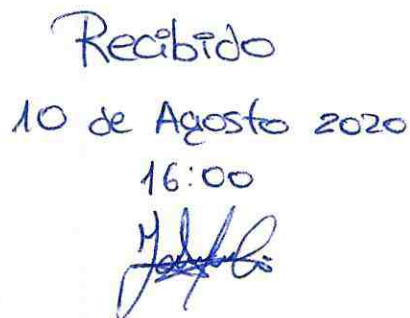 Recibido
10 de Agosto 2020
16:00